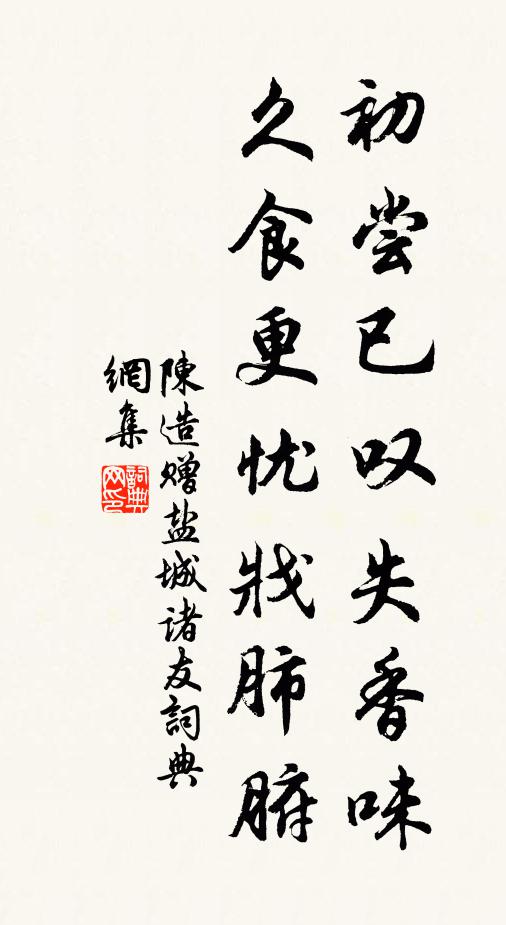 初尝已叹失香味
久食更忧戕肺腑
陳造赠盐城诸友詞典
網集
詞典
网印